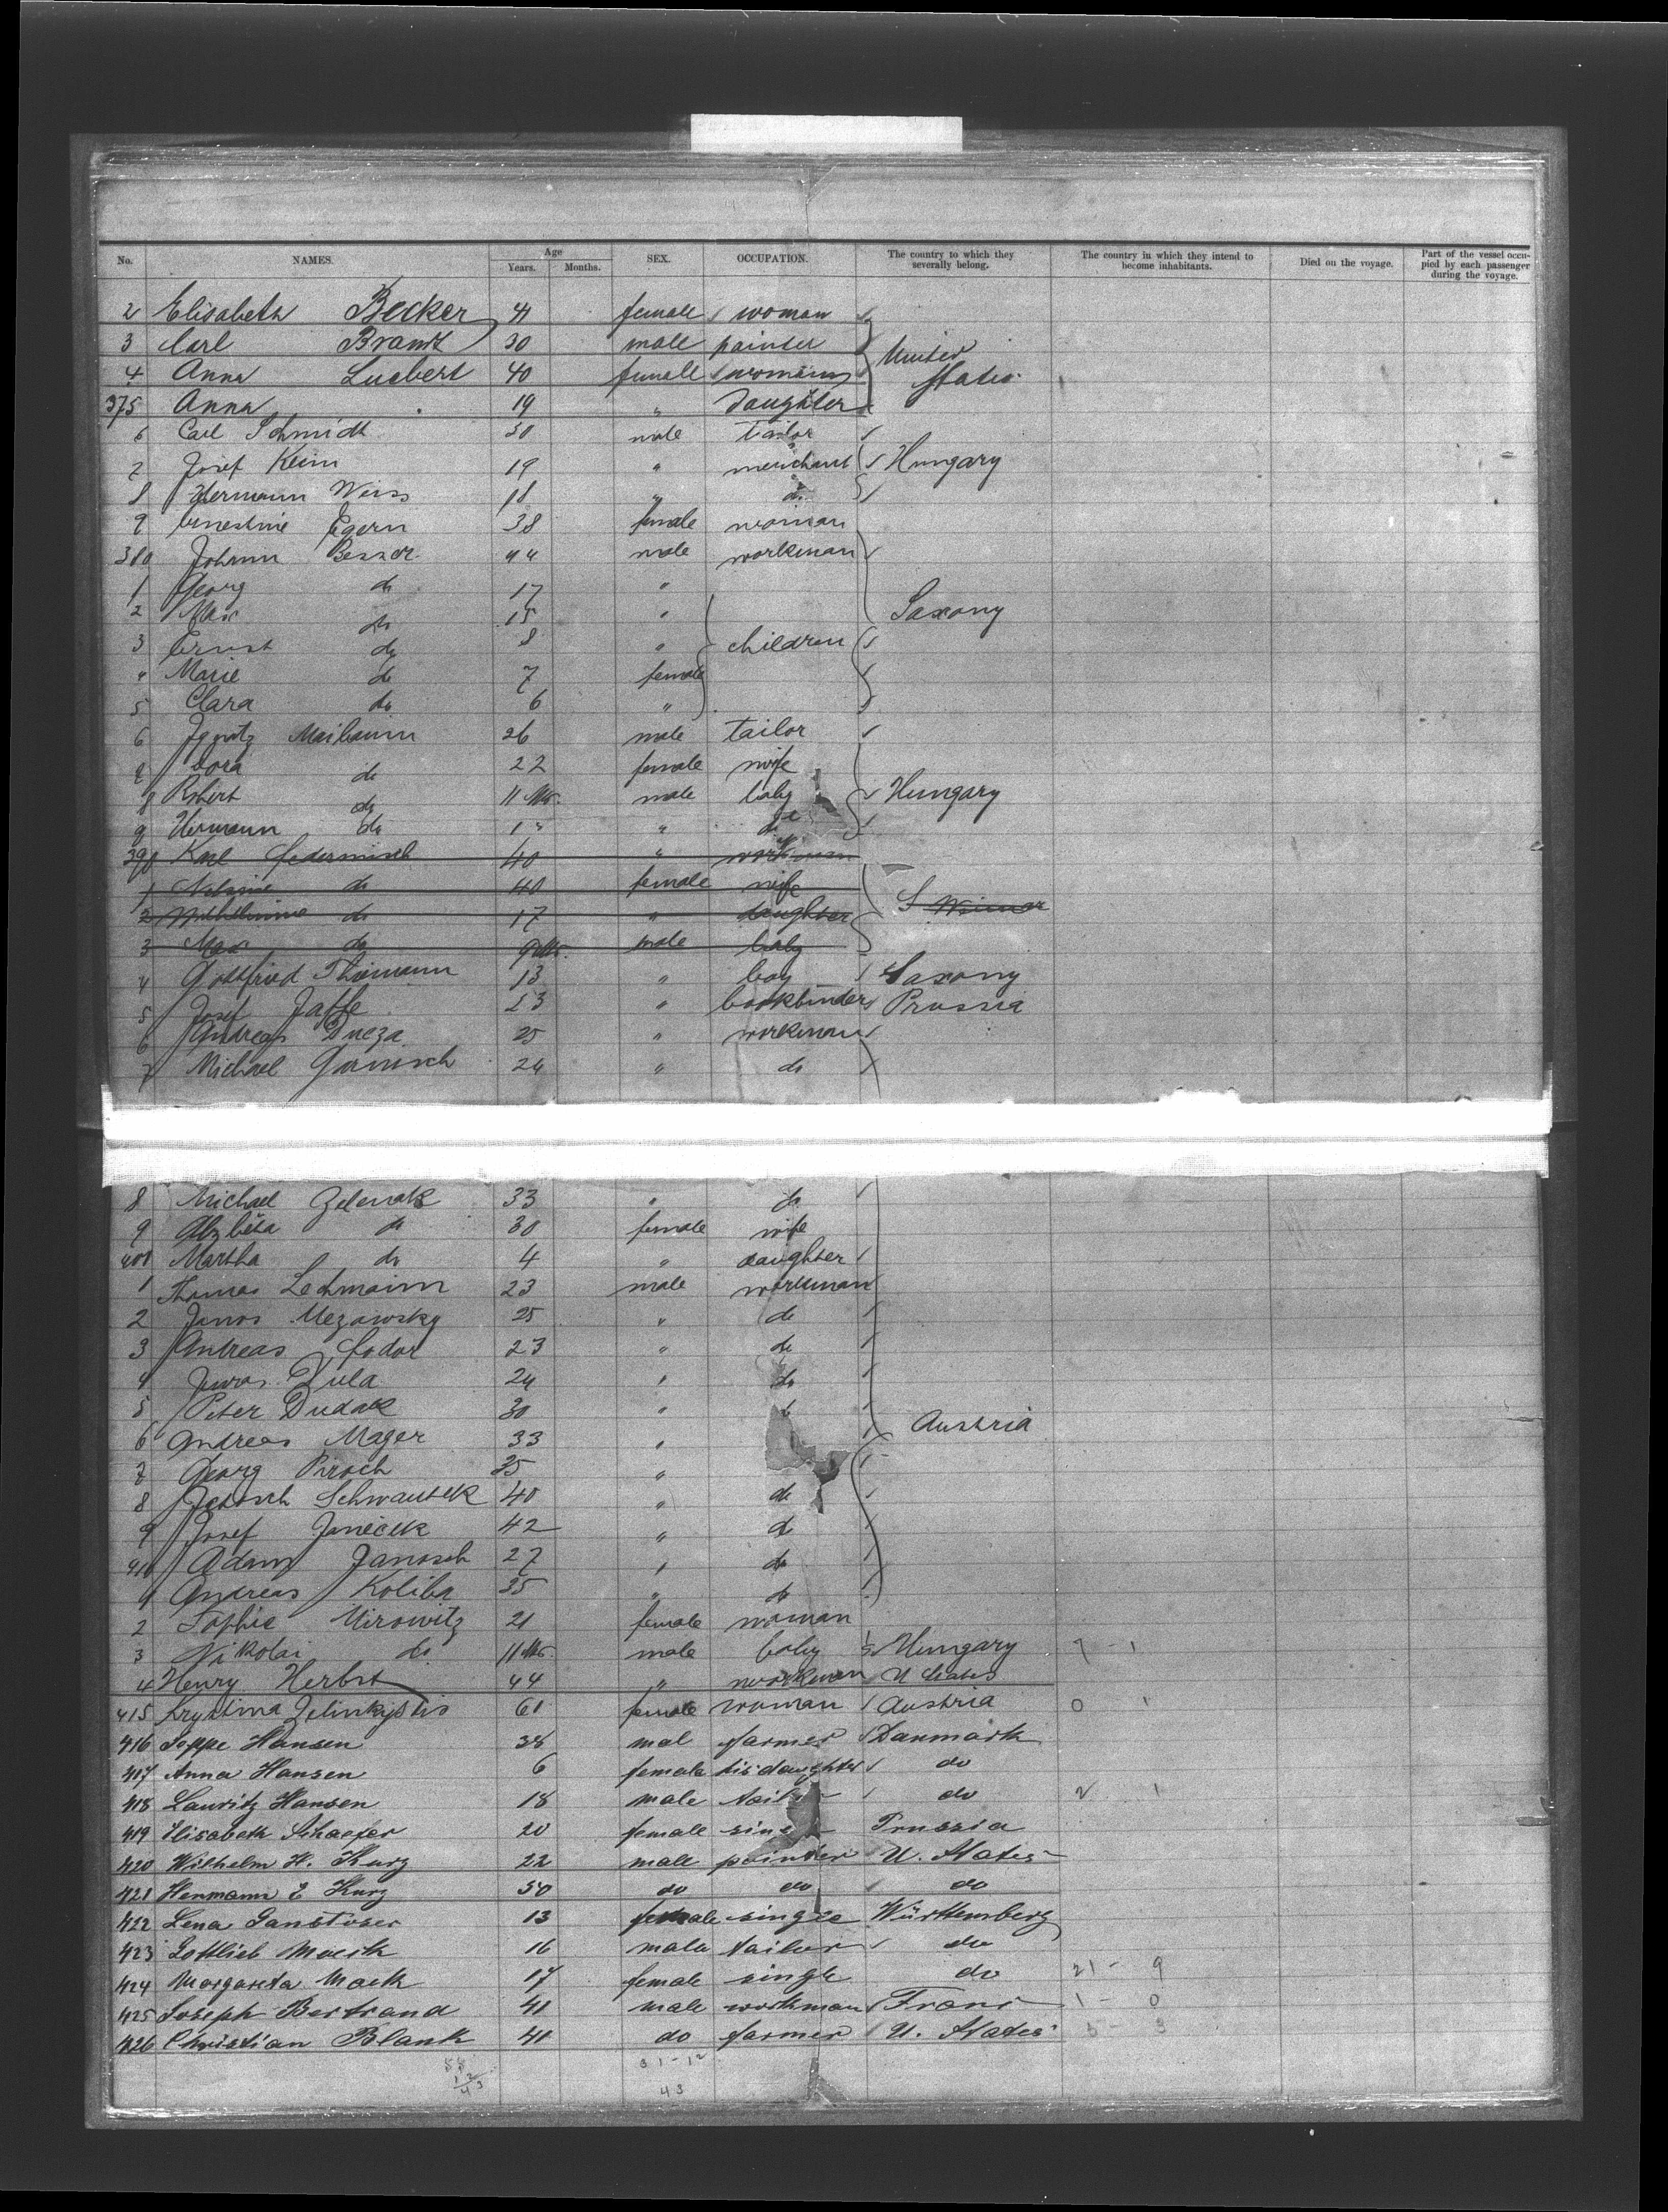 No. NAMES. Age Years. Months. SEX. OCCUPATION. The country to which they severally belong. The country in which they intend to become inhabitants. Died on the voyage. Part of the vessel occupied by each passenger during the voyage.
2 Elisabeth Becker 41 female woman
3 Carl Brandt 30 male painter
4 Anna Luebert 40 female woman United States
375 Anna 19 " daughter
6 Carl Schmidt 30 male tailor
7 Josef Keim 19 " merchant Hungary
8 Hermann Weiss 18 " do
9 Ernestine Egern 38 female woman
380 Johann Besser 44 male workman
1 Georg do 17 "
2 Max do 15 " Saxony
3 Ernst do 8 " children
4 Marie do 7 female
5 Clara do 6 "
6 Ignatz Maibaum 26 male tailor
7 Dora do 22 female wife
8 Robert do 11 Mo. male baby Hungary
9 Hermann do 1 " " do
390 Karl 40 " workman
1 do 40 female wife
2 Wilhelmine do 17 " daughter S Weimar
3 Max do 9 Mo. male baby
4 Gottfried Thiemann 13 " boy Saxony
5 Josef Jaffe 23 " bookbinder Prussia
6 Andreas Ducza 25 " workman
7 Michael Garnisch 24 " do
8 Michael Zelenak 33 " do
9 Alzbeta do 30 female wife
400 Martha do 4 " daughter
1 Thomas Lechmann 23 male workman
2 Janos Mezawsky 25 " do
3 Andreas Fodor 23 " do
4 Juras Zula 24 " do
5 Peter Dudak 30 "
6 Andreas Mager 33 " Austria
7 Georg Piroch 35 "
8 Janosch Schwautek 40 " do
9 Josef Janecek 42 " do
410 Adam Janosch 27 " do
1 Andreas Koliba 35 " do
2 Sophie Mirowitz 21 female woman
3 Nikolai do 11 Mo. male baby Hungary 7 - 1
4 Henry Herbst 44 " workman U States
415 Krystina 61 female woman Austria 0 1
416 Jeppe Hansen 38 mal farmer Danmark
417 Anna Hansen 6 female his daughter do
418 Lauritz Hansen 18 male do 2 1
419 Elisabeth Schaefer 20 female Prussia
420 Wilhelm H. Kurz 22 male painter U. States
421 Hermann E Kurz 30 do do do
422 Lena Ganstoser 13 female single Württemberg
423 Gottlieb Moerk 16 male tailor do
424 Margareta Mack 17 female single do 21 - 9
425 Joseph Bertrand 41 male workman Franc 1 - 0
426 Christian Blank 41 do farmer U. States 5 - 3
31 - 12
12
43 43